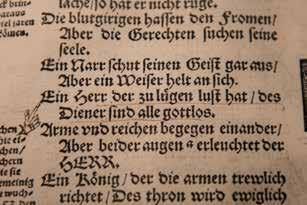 lache/ so hat er nicht ruge.
Die blutgirigen hassen den Fromen/
Aber die Gerechten suchen seine
seele.
Ein Narr schut seinen Geist gar aus/
Aber ein Weiser helt an sich.
Ein Herr der zu lügen lust hat/ des
Diener sind alle gottlos.
Arme vnd reichen begegen einander/
Aber beider augen a erleuchtet der
HERR.
Ein König/ der die armen trewlich
richtet/ Des thron wird ewiglich